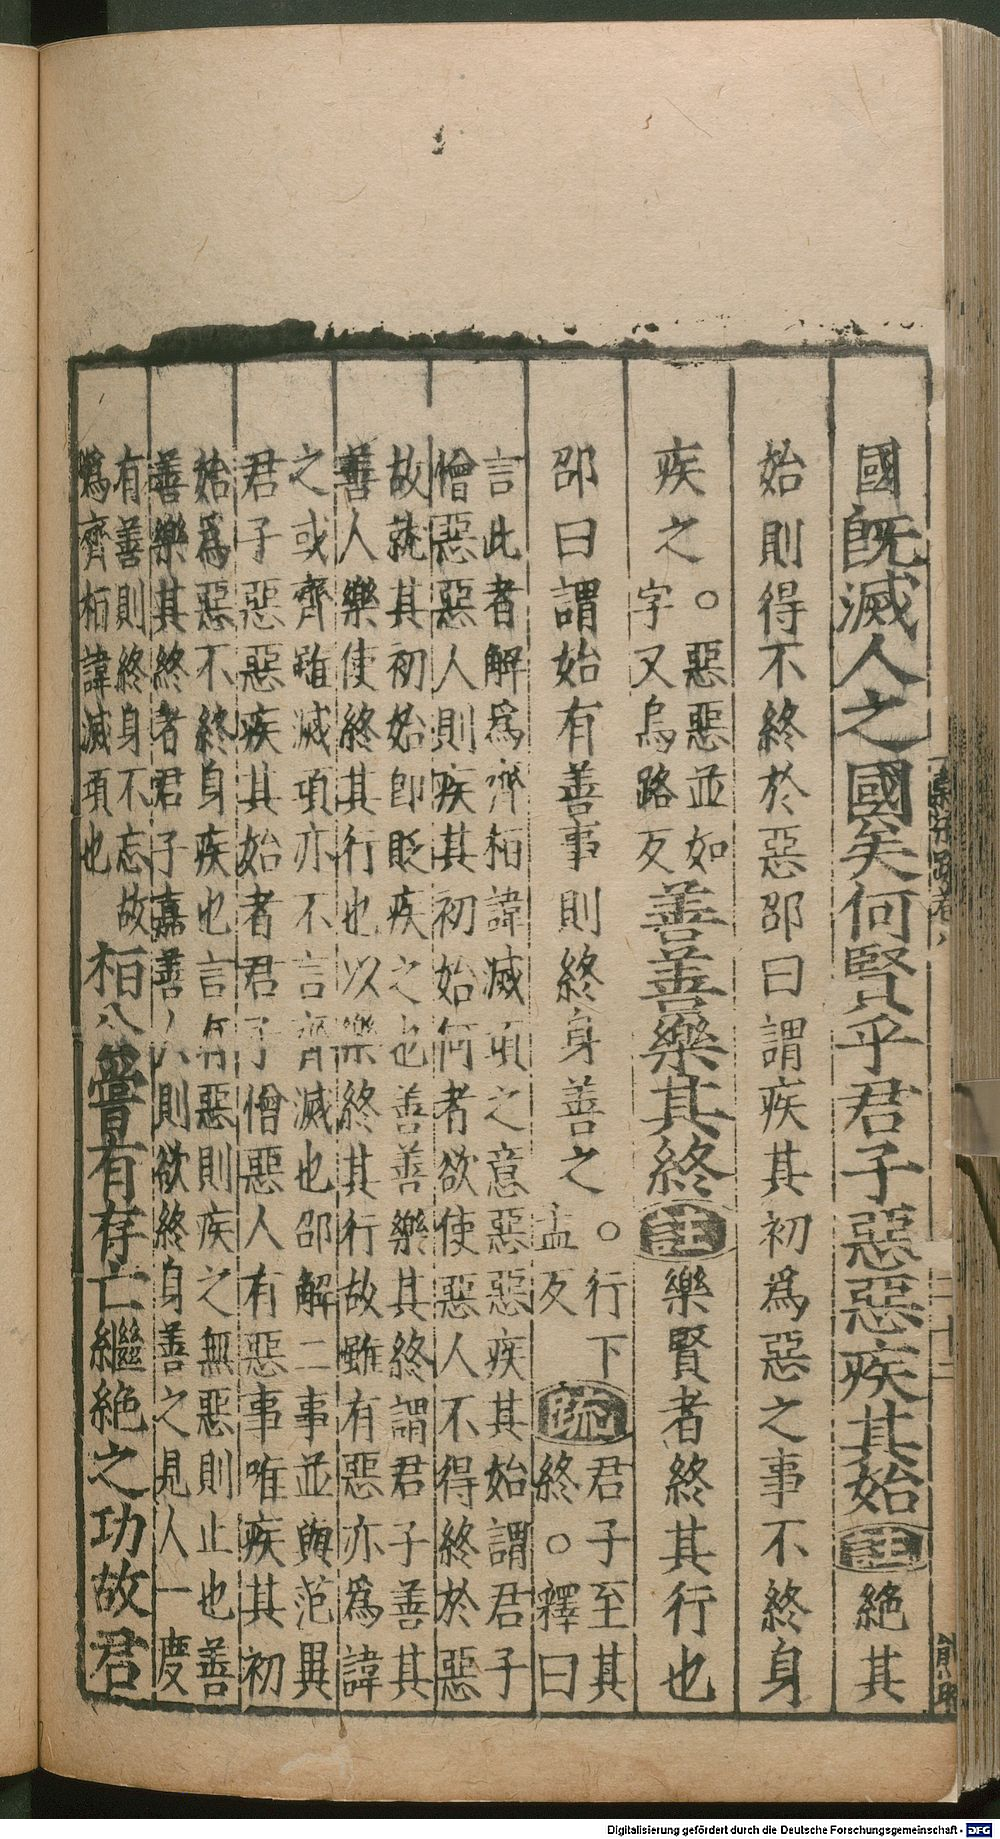 國既滅人之國矣何賢乎君子惡惡疾其始註絶其
始則得不終於惡邵曰謂疾其初爲惡之事不終身
疾之○惡惡並如字又烏路反善善樂其終註樂賢者終其行也
邵曰謂始有善事則終身善之○行下孟反疏君子至其終○釋曰
言此者解爲齊桓諱滅項之意惡惡疾其始謂君子
憎惡惡人則疾其初始何者欲使惡人不得終於惡
故就其初始即貶疾之也善善樂其終謂君子善其
善人樂使終其行也以樂終其行故雖有惡亦爲諱
之或齊雖滅項亦不言齊滅也邵解二事並與范異
君子惡惡疾其始者君子憎惡人有惡事唯疾其初
始爲惡不終身疾也言有惡則疾之無惡則止也善
善樂其終者君子嘉善人則欲終身善之見人一度
有善則終身不忘故
爲齊桓諱滅項也桓公嘗有存亡繼絶之功故君
二十二
Digitalisierung gefördert durch die Deutsche Forschungsgemeinschaft - DFG